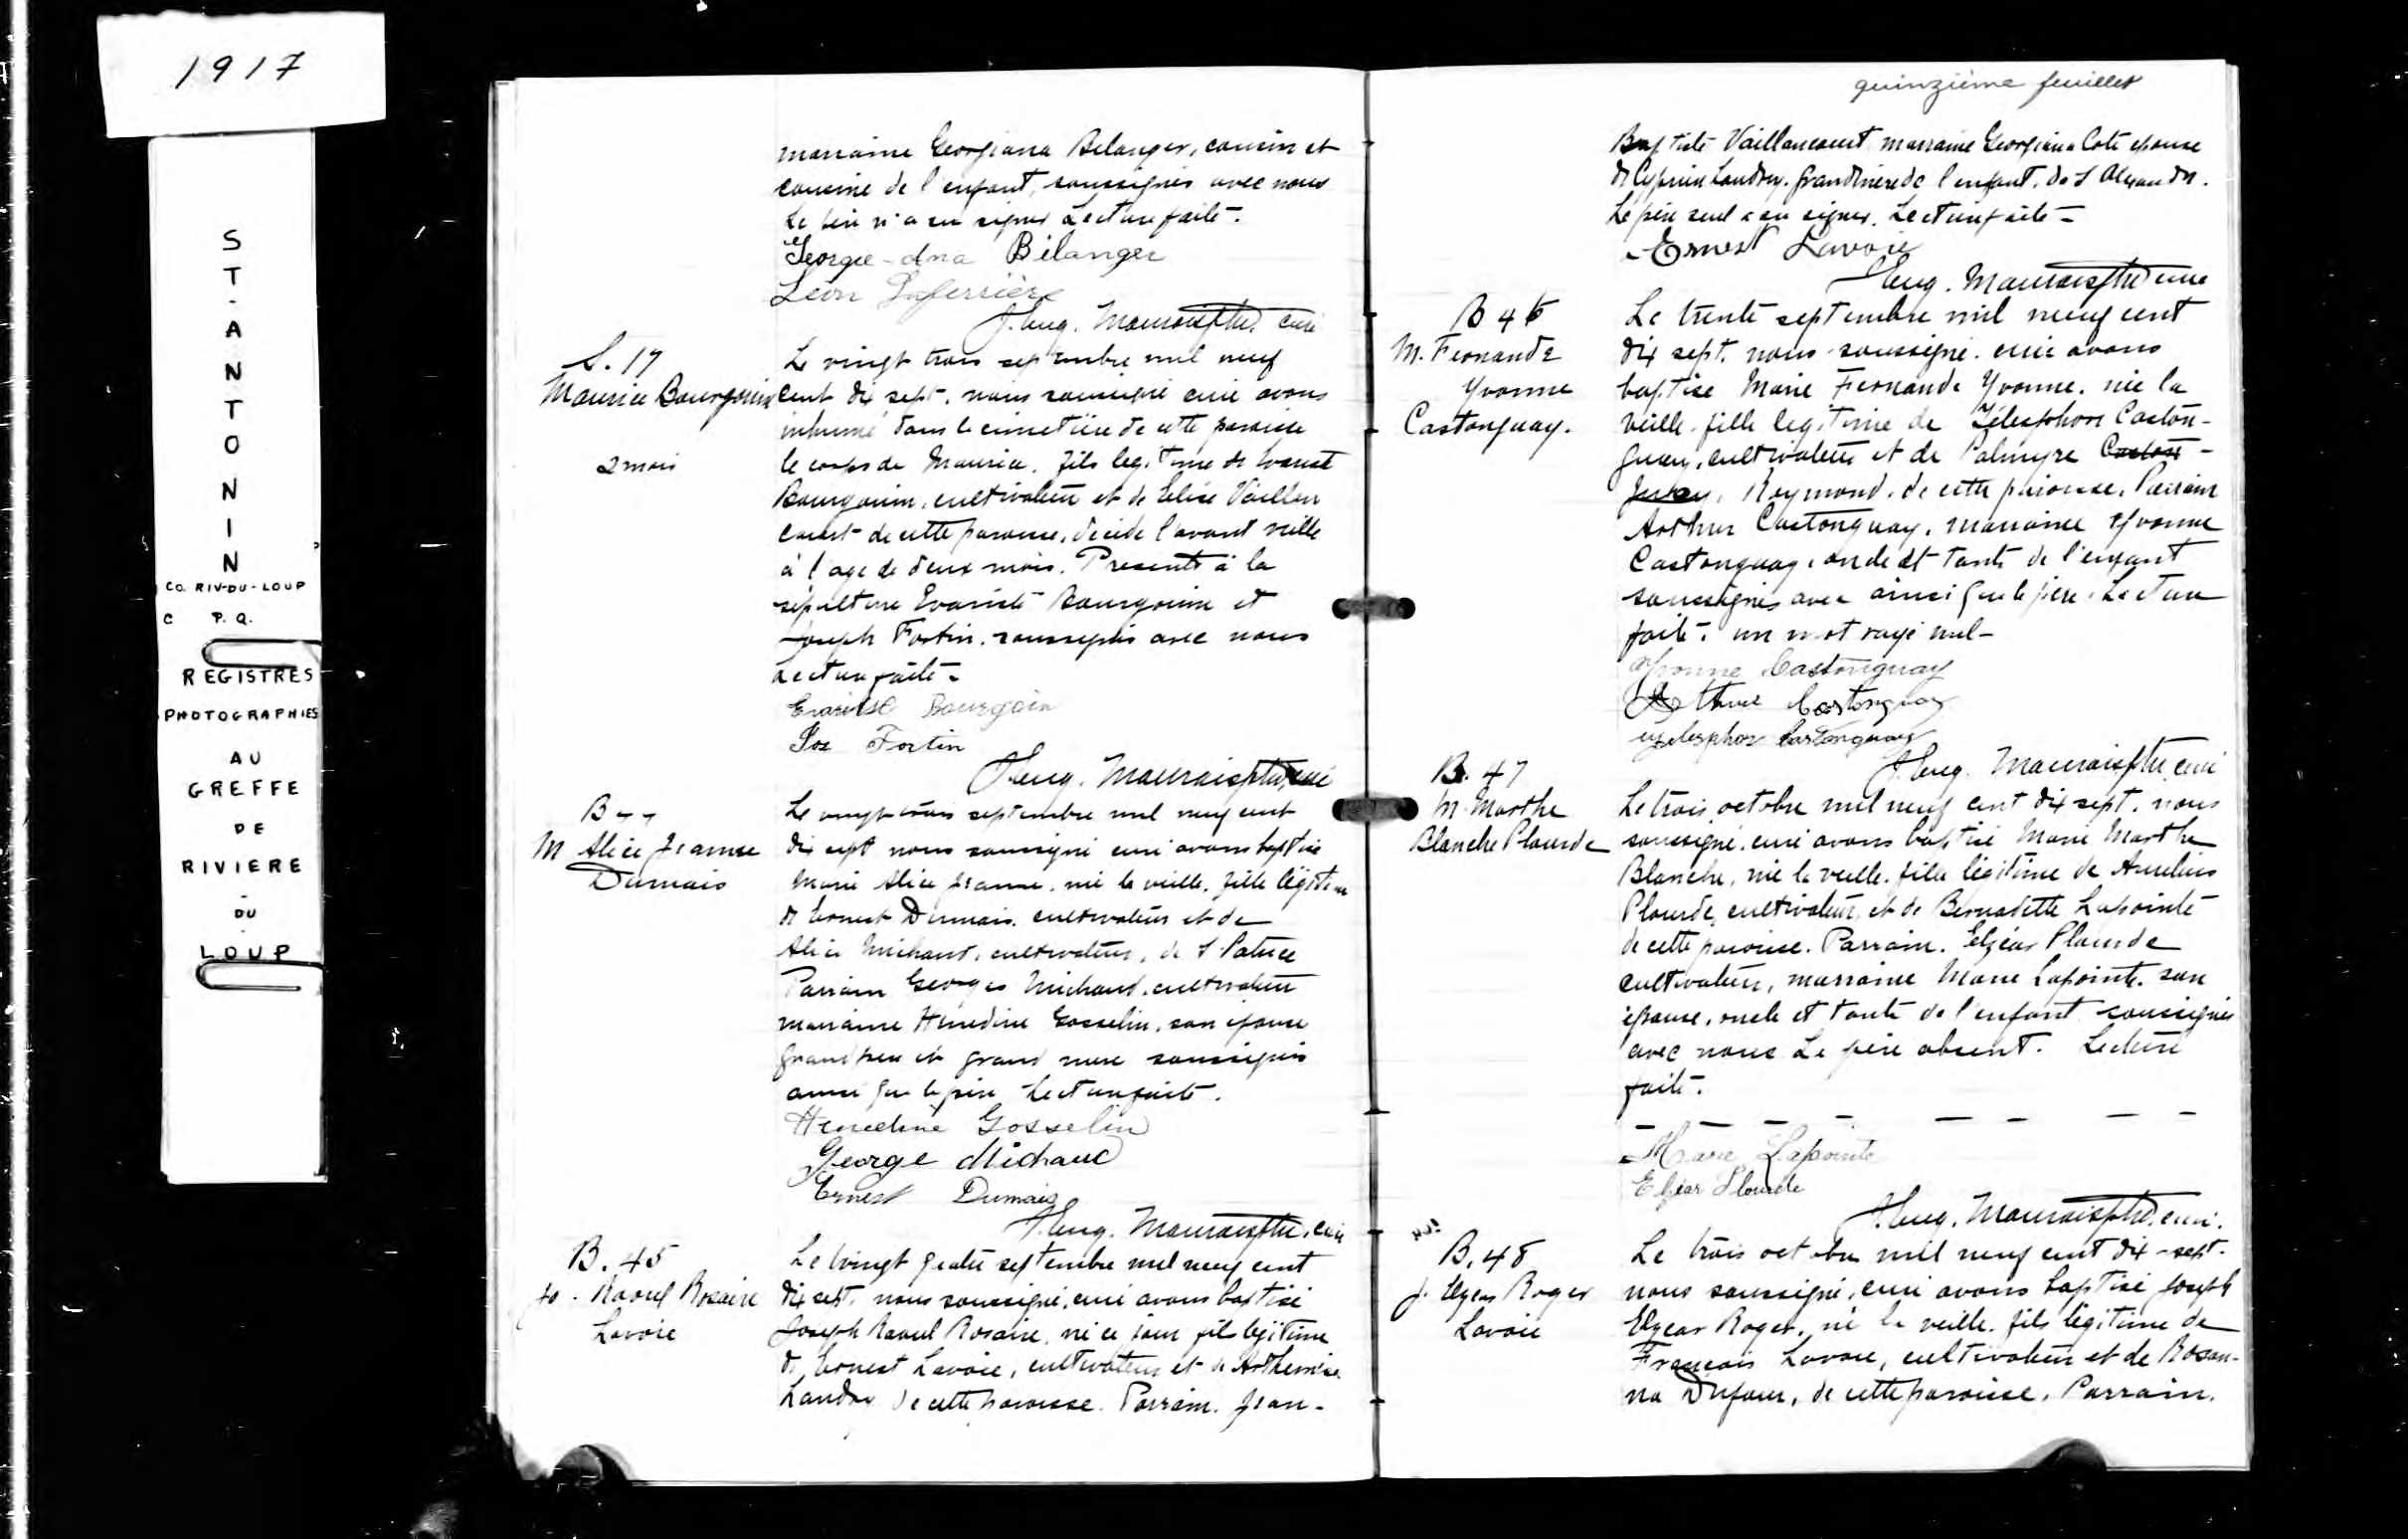 1917
ST-ANTONIN
CO. RIV-DU-LOUP
C P.Q.
REGISTRES
PHOTOGRAPHIES
AU
GREFFE
DE
RIVIERE
-
DU
LOUP
marraine Georgiana Belanger, cousin et
cousine de l'enfant, soussignés avec nous
Le père n'a su signer Lecture faite.
Georgie-Ana Bélanger
Léon Laferrière
J. Eug. Maurais ptre. curé
S. 17
Maurice Bourgouin
2 mois
Le vingt trois septembre mil neuf
cent dix sept, nous soussigné curé avons
inhumé dans le cimetière de cette paroisse
le corps de Maurice, fils legitime de Evariste
Bourgouin, cultivateur et de Elise Vaillan
court de cette paroisse, décédé l'avant veille
à l'age de deux mois. Presents à la
sépulture Evariste Bourgouin et
Joseph Fortin, soussignés avec nous
Lecture faite -
Evariste Bourgoin
Jos Fortin
J. Eug. Maurais ptre, curé
B
M Alice Jeanne
Dumais
Le vingt-trois septembre mil neuf cent
dix sept nous soussigné curé avons baptisé
Marie Alice Jeanne, née la veille, fille légitime
de Ernest Dumais, cultivateur et de
Alice Michaud, cultivateur, de S. Patrice
Parrain Georges Michaud, cultivateur
marraine Hénedine Gosselin, son épouse
grand père et grand mere soussignés
ainsi que le père Lecture faite.
Henedine Gosselin
George Michaud
Ernest Dumais
J. Eug. Maurais ptre, curé
B. 45
Jo. Raoul Rosaire
Lavoie
Le vingt quatre septembre mil neuf cent
dix sept, nous soussigné, curé avons baptisé
Joseph Raoul Rosaire, né ce jour fils légitime
de Ernest Lavoie, cultivateur et de Arthemise
Landry de cette paroisse. Parrain. Jean-
quinzième feuillet
Baptiste Vaillancourt marraine Georgiana Coté epouse
de Cyprien Landry. grandmère de l'enfant. de S Alexandre.
Le père seul a su signer. Lecture faite -
Ernest Lavoie
J Eug. Maurais ptre curé
B 46
M. Fernande
Yvonne
Castonguay.
Le trente septembre mil neuf cent
dix sept, nous soussigné, curé avons
baptisé Marie Fernande Yvonne, née la
veille, fille legitime de Télesphore Caston-
guay, cultivateur et de Palmyre Caston -
guay, Raymond, de cette paroisse. Parrain
Arthur Castonguay, marraine Yvonne
Castonguay, oncle et tante de l'enfant
soussignés avec ainsi que le père. Lecture
faite. un mot rayé nul -
Yvonne Castonguay
Arthur Castonguay
Castonguay
J. Eug. Maurais ptre, curé
B. 47
M. Marthe
Blanche Plourde
Le trois octobre mil neuf cent dix sept, nous
soussigné, curé avons baptisé Marie Marthe
Blanche, née la veille, fille légitime de Aurelius
Plourde, cultivateur, et de Bernadette Lapointe
de cette paroisse. Parrain. Elzéar Plourde
cultivateur, marraine Marie Lapointe, son
épouse, oncle et tante de l'enfant soussignés
avec nous Le père absent. Lecture
faite.
Marie Lapointe
Elzéar Plourde
J. Eug. Maurais ptre, curé.
B. 48
J. Elzear Roger
Lavoie
Le trois octobre mil neuf cent dix-sept.
nous soussigné, curé avons baptisé Joseph
Elzear Roger, né la veille, fils légitime de
François Lavoie, cultivateur et de Rosan-
na Dufour, de cette paroisse, Parrain.